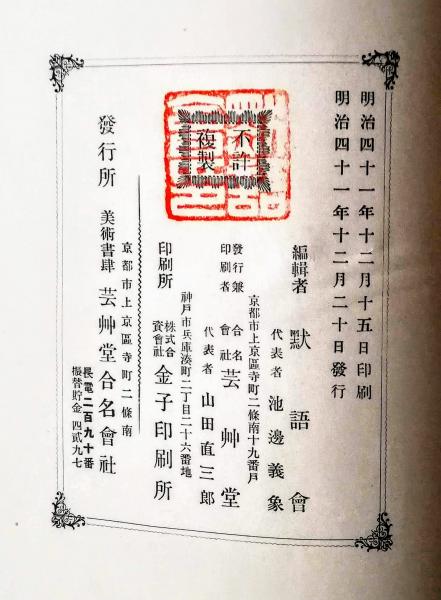 明治四十一年十二月十五日印刷
明治四十一年十二月二十日發行
不許
複製
編輯者 默語會
代表者 池邊義象
京都市上京區寺町二條南十九番戸
發行兼
印刷者
合名
會社
芸艸堂
代表者 山田直三郎
神戸市兵庫湊町二丁目二十六番地
印刷所
株式合
資會社
金子印刷所
京都市上京區寺町二條南
發行所 美術書肆 芸艸堂合名會社
長電二百九十番
振替貯金 四貳九七